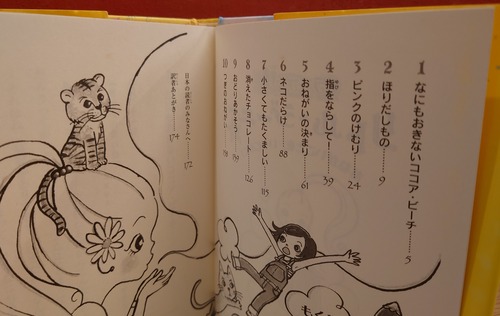 1 なにもおきないココア・ビーチ……5
2 ほりだしもの……9
3 ピンクのけむり……24
4 指をならして!……39
5 おねがいの決まり……61
6 ネコだらけ……88
7 小さくてもたくましい……115
8 消えたチョコレート……126
9 おどりあかそう……139
10 つぎのおねがい……158
日本の読者のみなさんへ……172
訳者あとがき……174